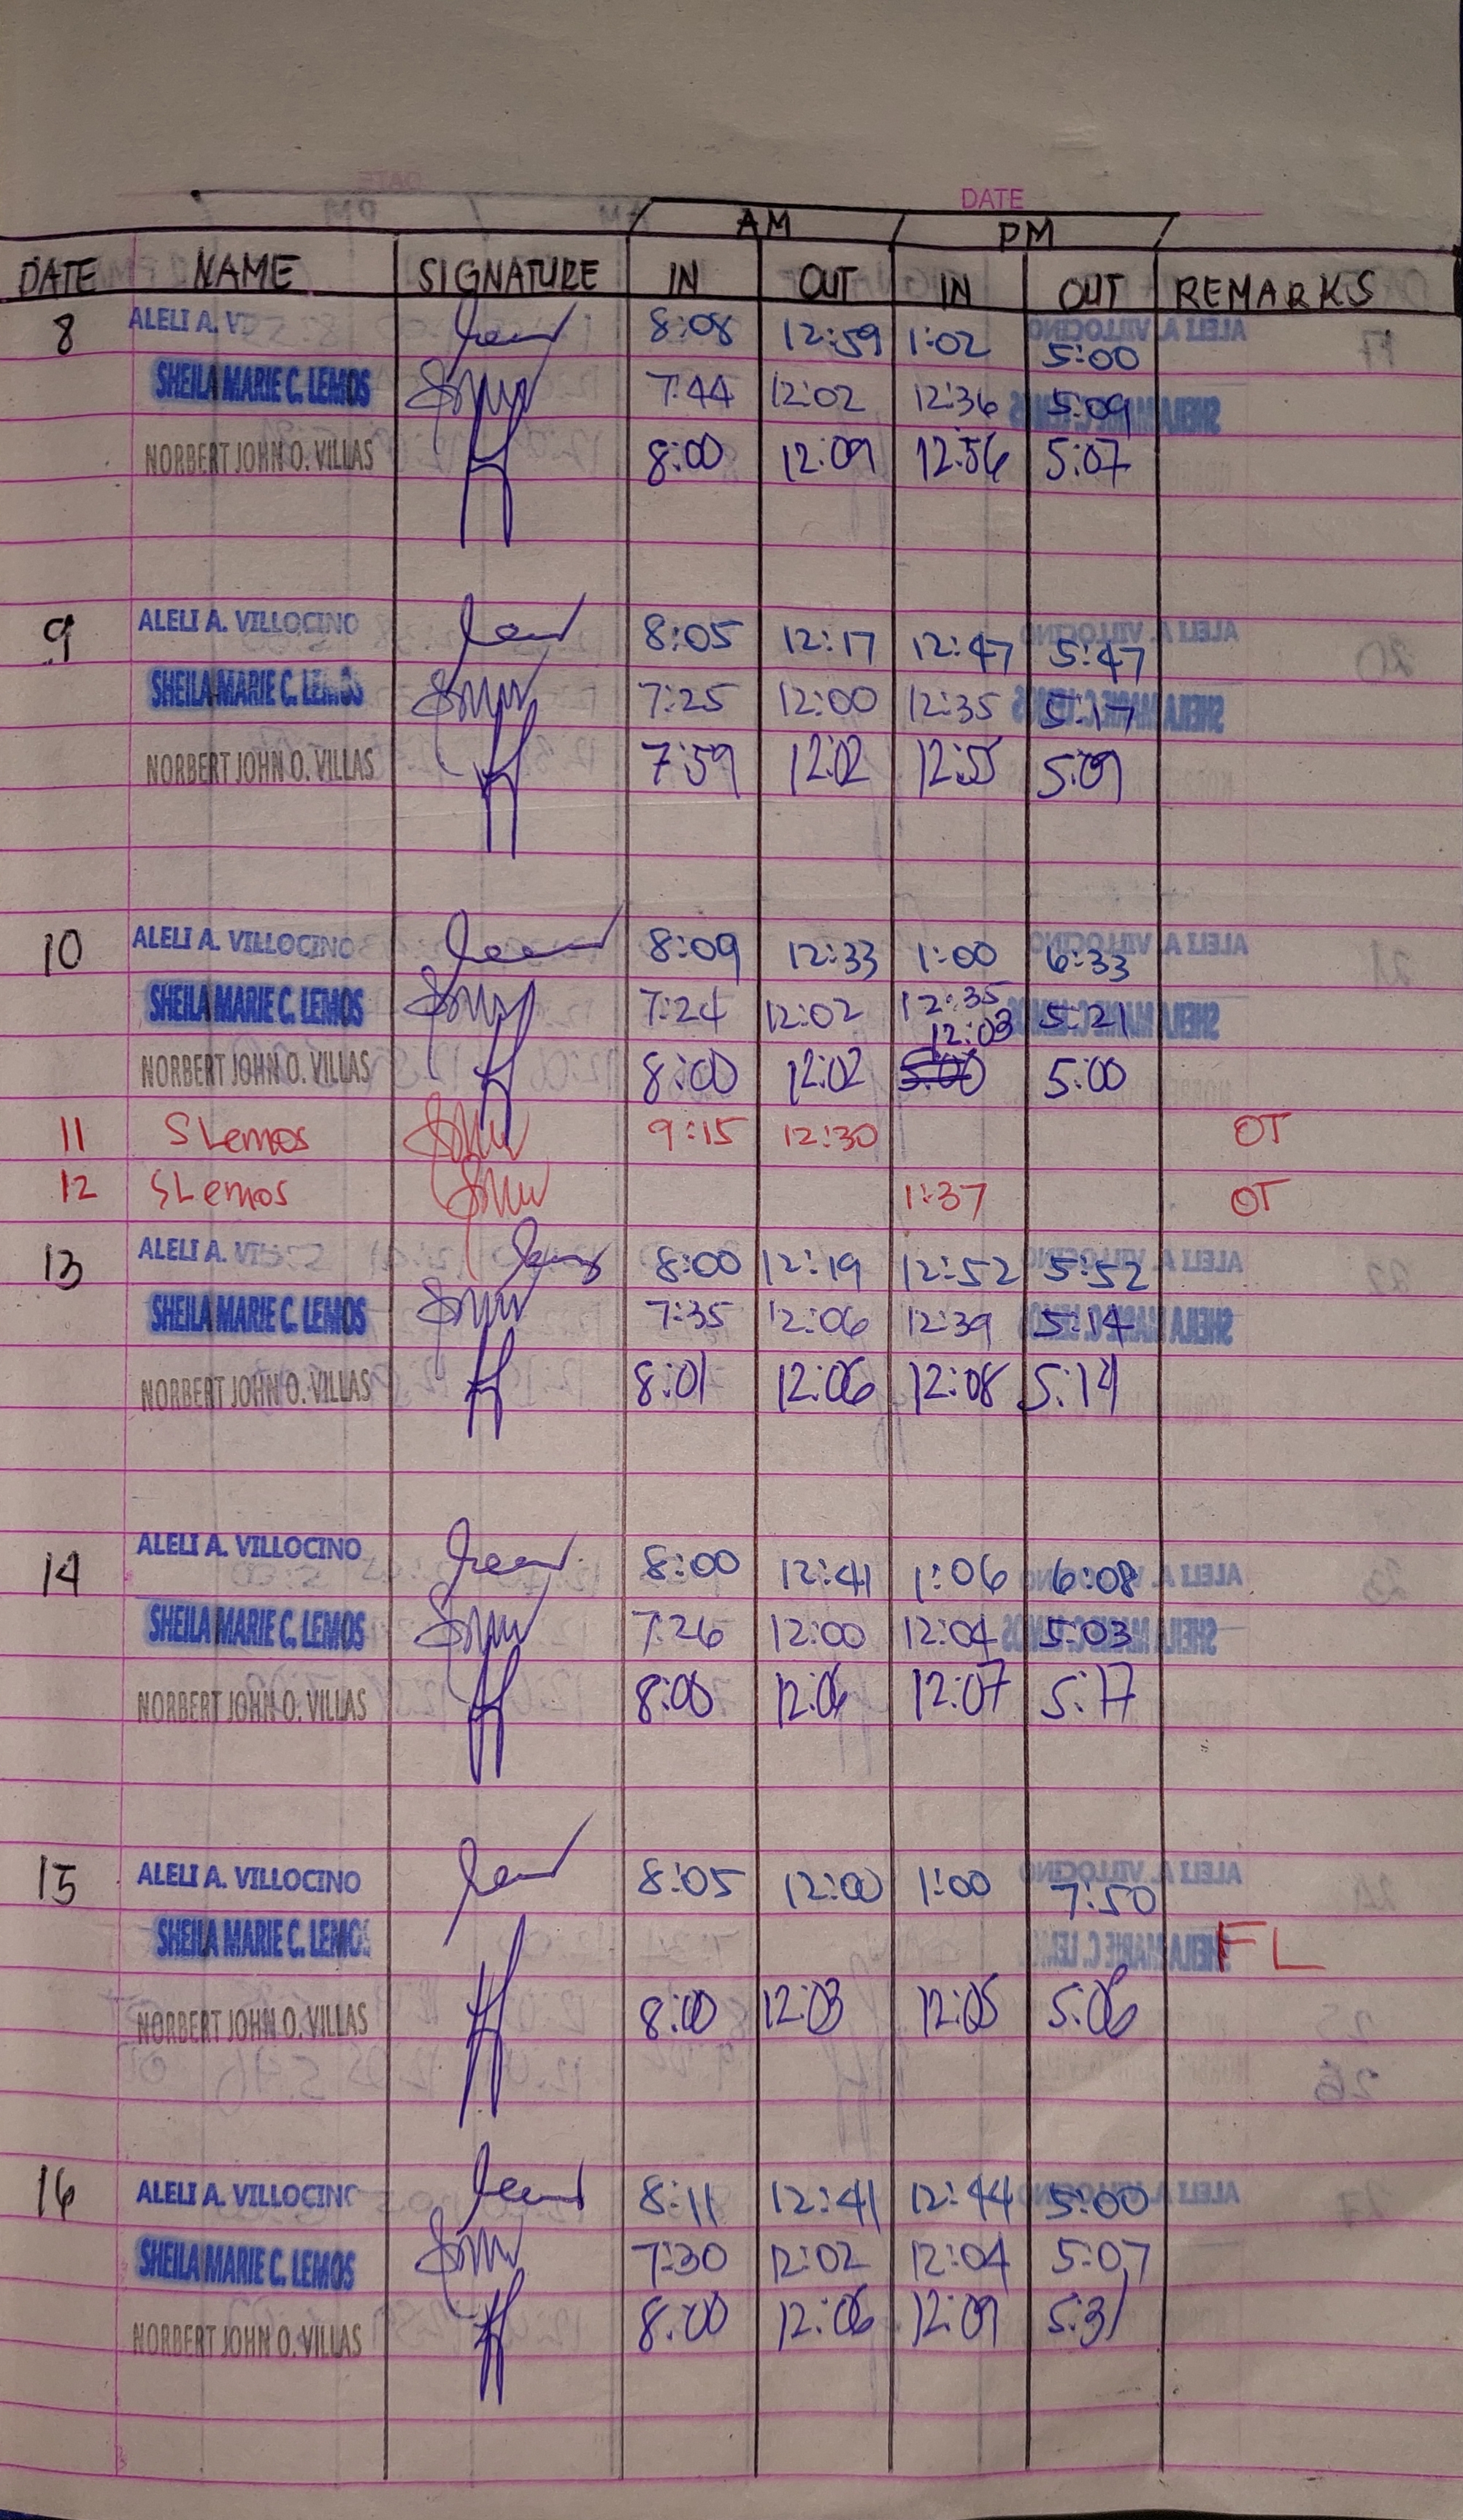 DATE
AM PM
DATE NAME SIGNATURE IN OUT IN OUT REMARKS
8 ALELI A. V 8:08 12:59 1:02 5:00
SHEILA MARIE C. LEMOS 7:44 12:02 12:36 5:09
NORBERT JOHN O. VILLAS 8:00 12:09 12:56 5:07
9 ALELI A. VILLOCINO 8:05 12:17 12:47 5:47
SHEILA MARIE C. LEMOS 7:25 12:00 12:35 5:17
NORBERT JOHN O. VILLAS 7:59 12:02 12:55 5:09
10 ALELI A. VILLOCINO 8:09 12:33 1:00 6:33
SHEILA MARIE C. LEMOS 7:24 12:02 12:35 5:21
12:03
NORBERT JOHN O. VILLAS 8:00 12:02 5:00 5:00
11 SLemos 9:15 12:30 OT
12 SLemos 1:37 OT
13 ALELI A. 8:00 12:19 12:52 5:52
SHEILA MARIE C. LEMOS 7:35 12:06 12:39 5:14
NORBERT JOHN O. VILLAS 8:01 12:06 12:08 5:14
14 ALELI A. VILLOCINO 8:00 12:41 1:06 6:08
SHEILA MARIE C. LEMOS 7:26 12:00 12:04 5:03
NORBERT JOHN O. VILLAS 8:00 12:06 12:07 5:17
15 ALELI A. VILLOCINO 8:05 12:00 1:00 7:50
SHEILA MARIE C. LEMOS FL
NORBERT JOHN O. VILLAS 8:00 12:03 12:05 5:06
16 ALELI A. VILLOCINO 8:11 12:41 12:44 5:00
SHEILA MARIE C. LEMOS 7:30 12:02 12:04 5:07
NORBERT JOHN O. VILLAS 8:00 12:06 12:09 5:31